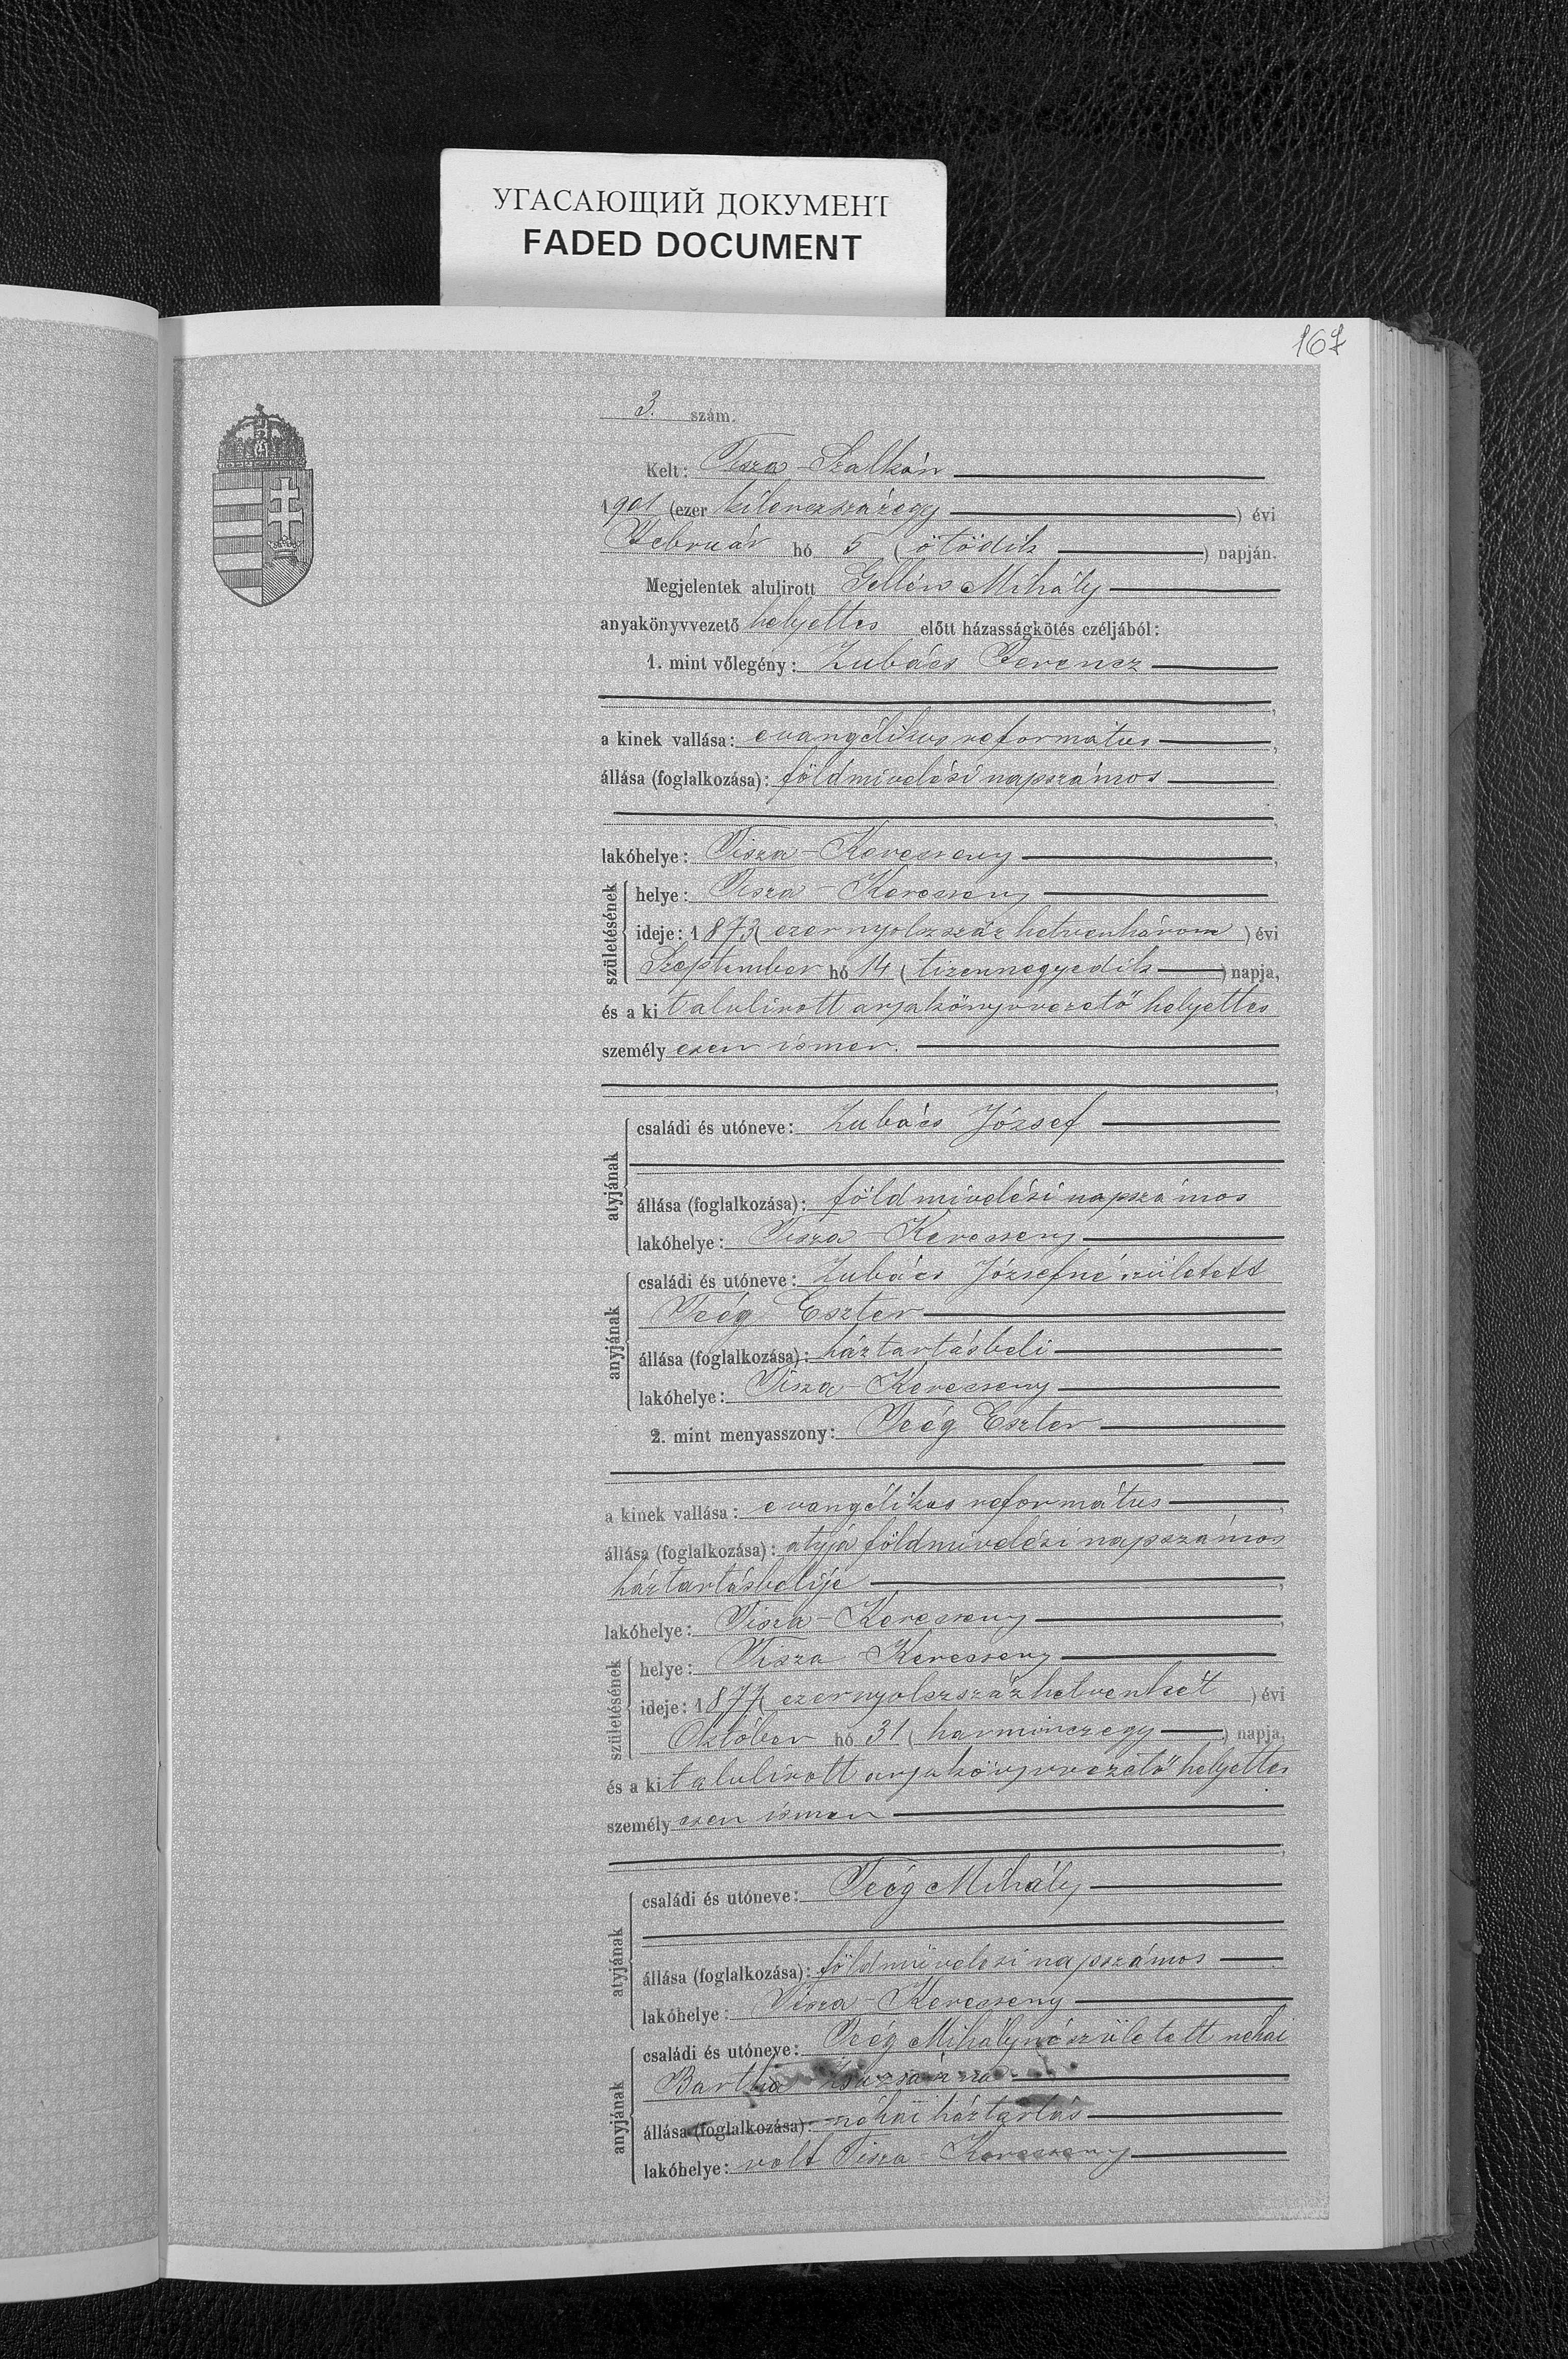 УГАСАЮЩИЙ ДОКУМЕНТ
FADED DOCUMENT
167
3. szám.
Kelt: Tisza-Szalkán
1901 (ezer kilenczszázegy) évi
Február hó 5 (ötödik) napján.
Megjelentek alulirott Gellén Mihály
anyakönyvvezető helyettes előtt házasságkötés czéljából:
1. mint vőlegény: Lubács Ferencz
a kinek vallása: evangélikus református
állása (foglalkozása): földmivelési napszámos
lakóhelye: Tisza-Kerecseny
születésének
helye: Tisza-Kerecseny
ideje: 1873 (ezernyolczszázhetvenhárom) évi
Szeptember hó 14 (tizennegyedik) napja,
és a kit alulirott anyakönyvvezető helyettes
személyesen ismer.
atyjának
családi és utóneve: Lubács József
állása (foglalkozása): földmivelési napszámos
lakóhelye: Tisza-Kerecseny
anyjának
családi és utóneve: Lubács Józsefné született
Eszter
állása (foglalkozása): háztartásbeli
lakóhelye: Tisza-Kerecseny
2. mint menyasszony: Eszter
a kinek vallása: evangélikus református
állása (foglalkozása): atyja földmivelési napszámos
háztartásbelije
lakóhelye: Tisza-Kerecseny
születésének
helye: Tisza Kerecseny
ideje: 1877 (ezernyolczszázhetvenhét) évi
Október hó 31 (harminczegy) napja,
és a kit alulirott anyakönyvvezető helyettes
személyesen ismer
atyjának
családi és utóneve: Mihály
állása (foglalkozása): földmivelési napszámos
lakóhelye: Tisza-Kerecseny
anyjának
családi és utóneve: Mihályné született néhai
Bartha Zsuzsánna
állása (foglalkozása): néhai háztartás
lakóhelye: volt Tisza-Kerecseny